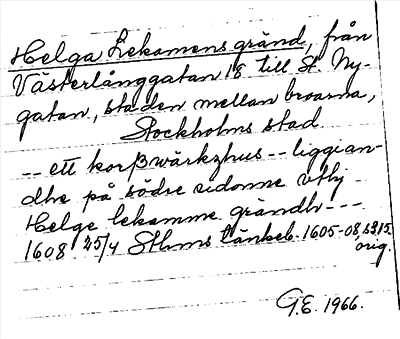 Helga Lekamens gränd, från
Västerlånggatan 18 till St Ny-
gatan, staden mellan broarna,
Stockholms stad
-- ett korßwärkzhus -- liggian-
dhe på södre sidonne vthj
Helge lekamme grändh ---
1608 25/4 Sthms tänkeb. 1605-08, s 215
orig.
G.E. 1966.